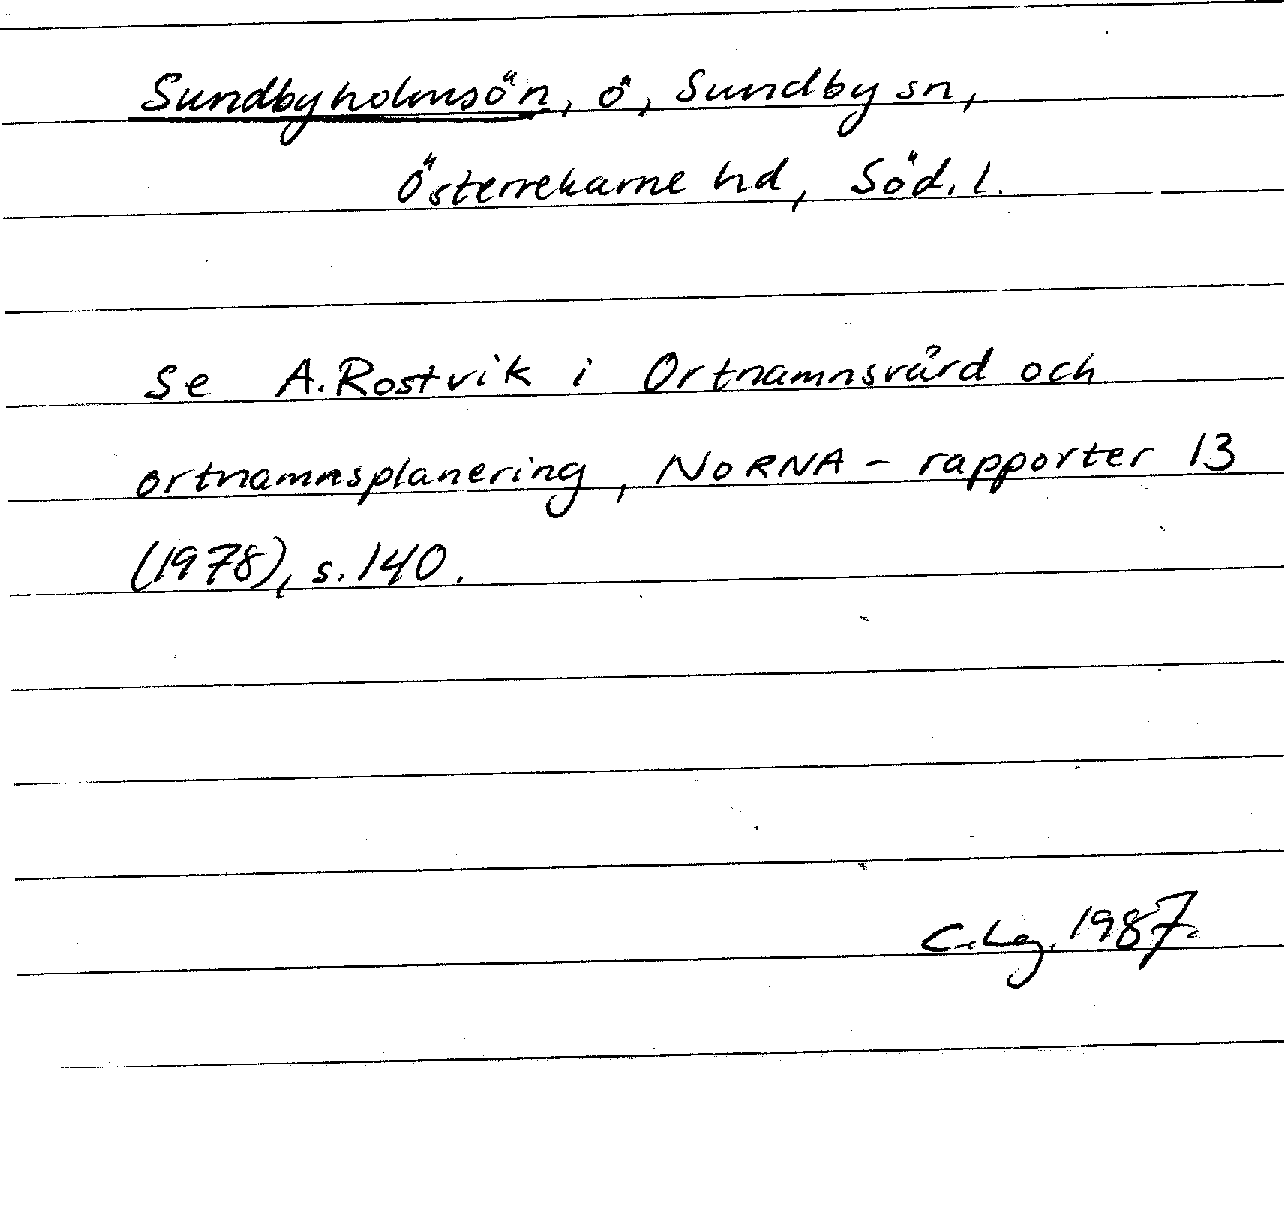 Sundbyholmsön, ö, Sundby sn,
Österrekarne hd, Söd. l.
Se A. Rostvik i Ortnamnsvård och
ortnamnsplanering, NORNA - rapporter 13
(1978), s. 140.
C. Lg. 1987.